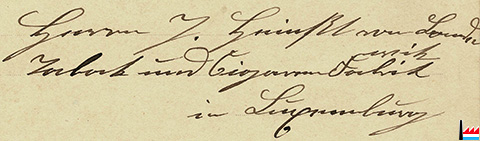 Herrn J. van Lande
Tabak und Cigarren Fabrik
in Luxemburg